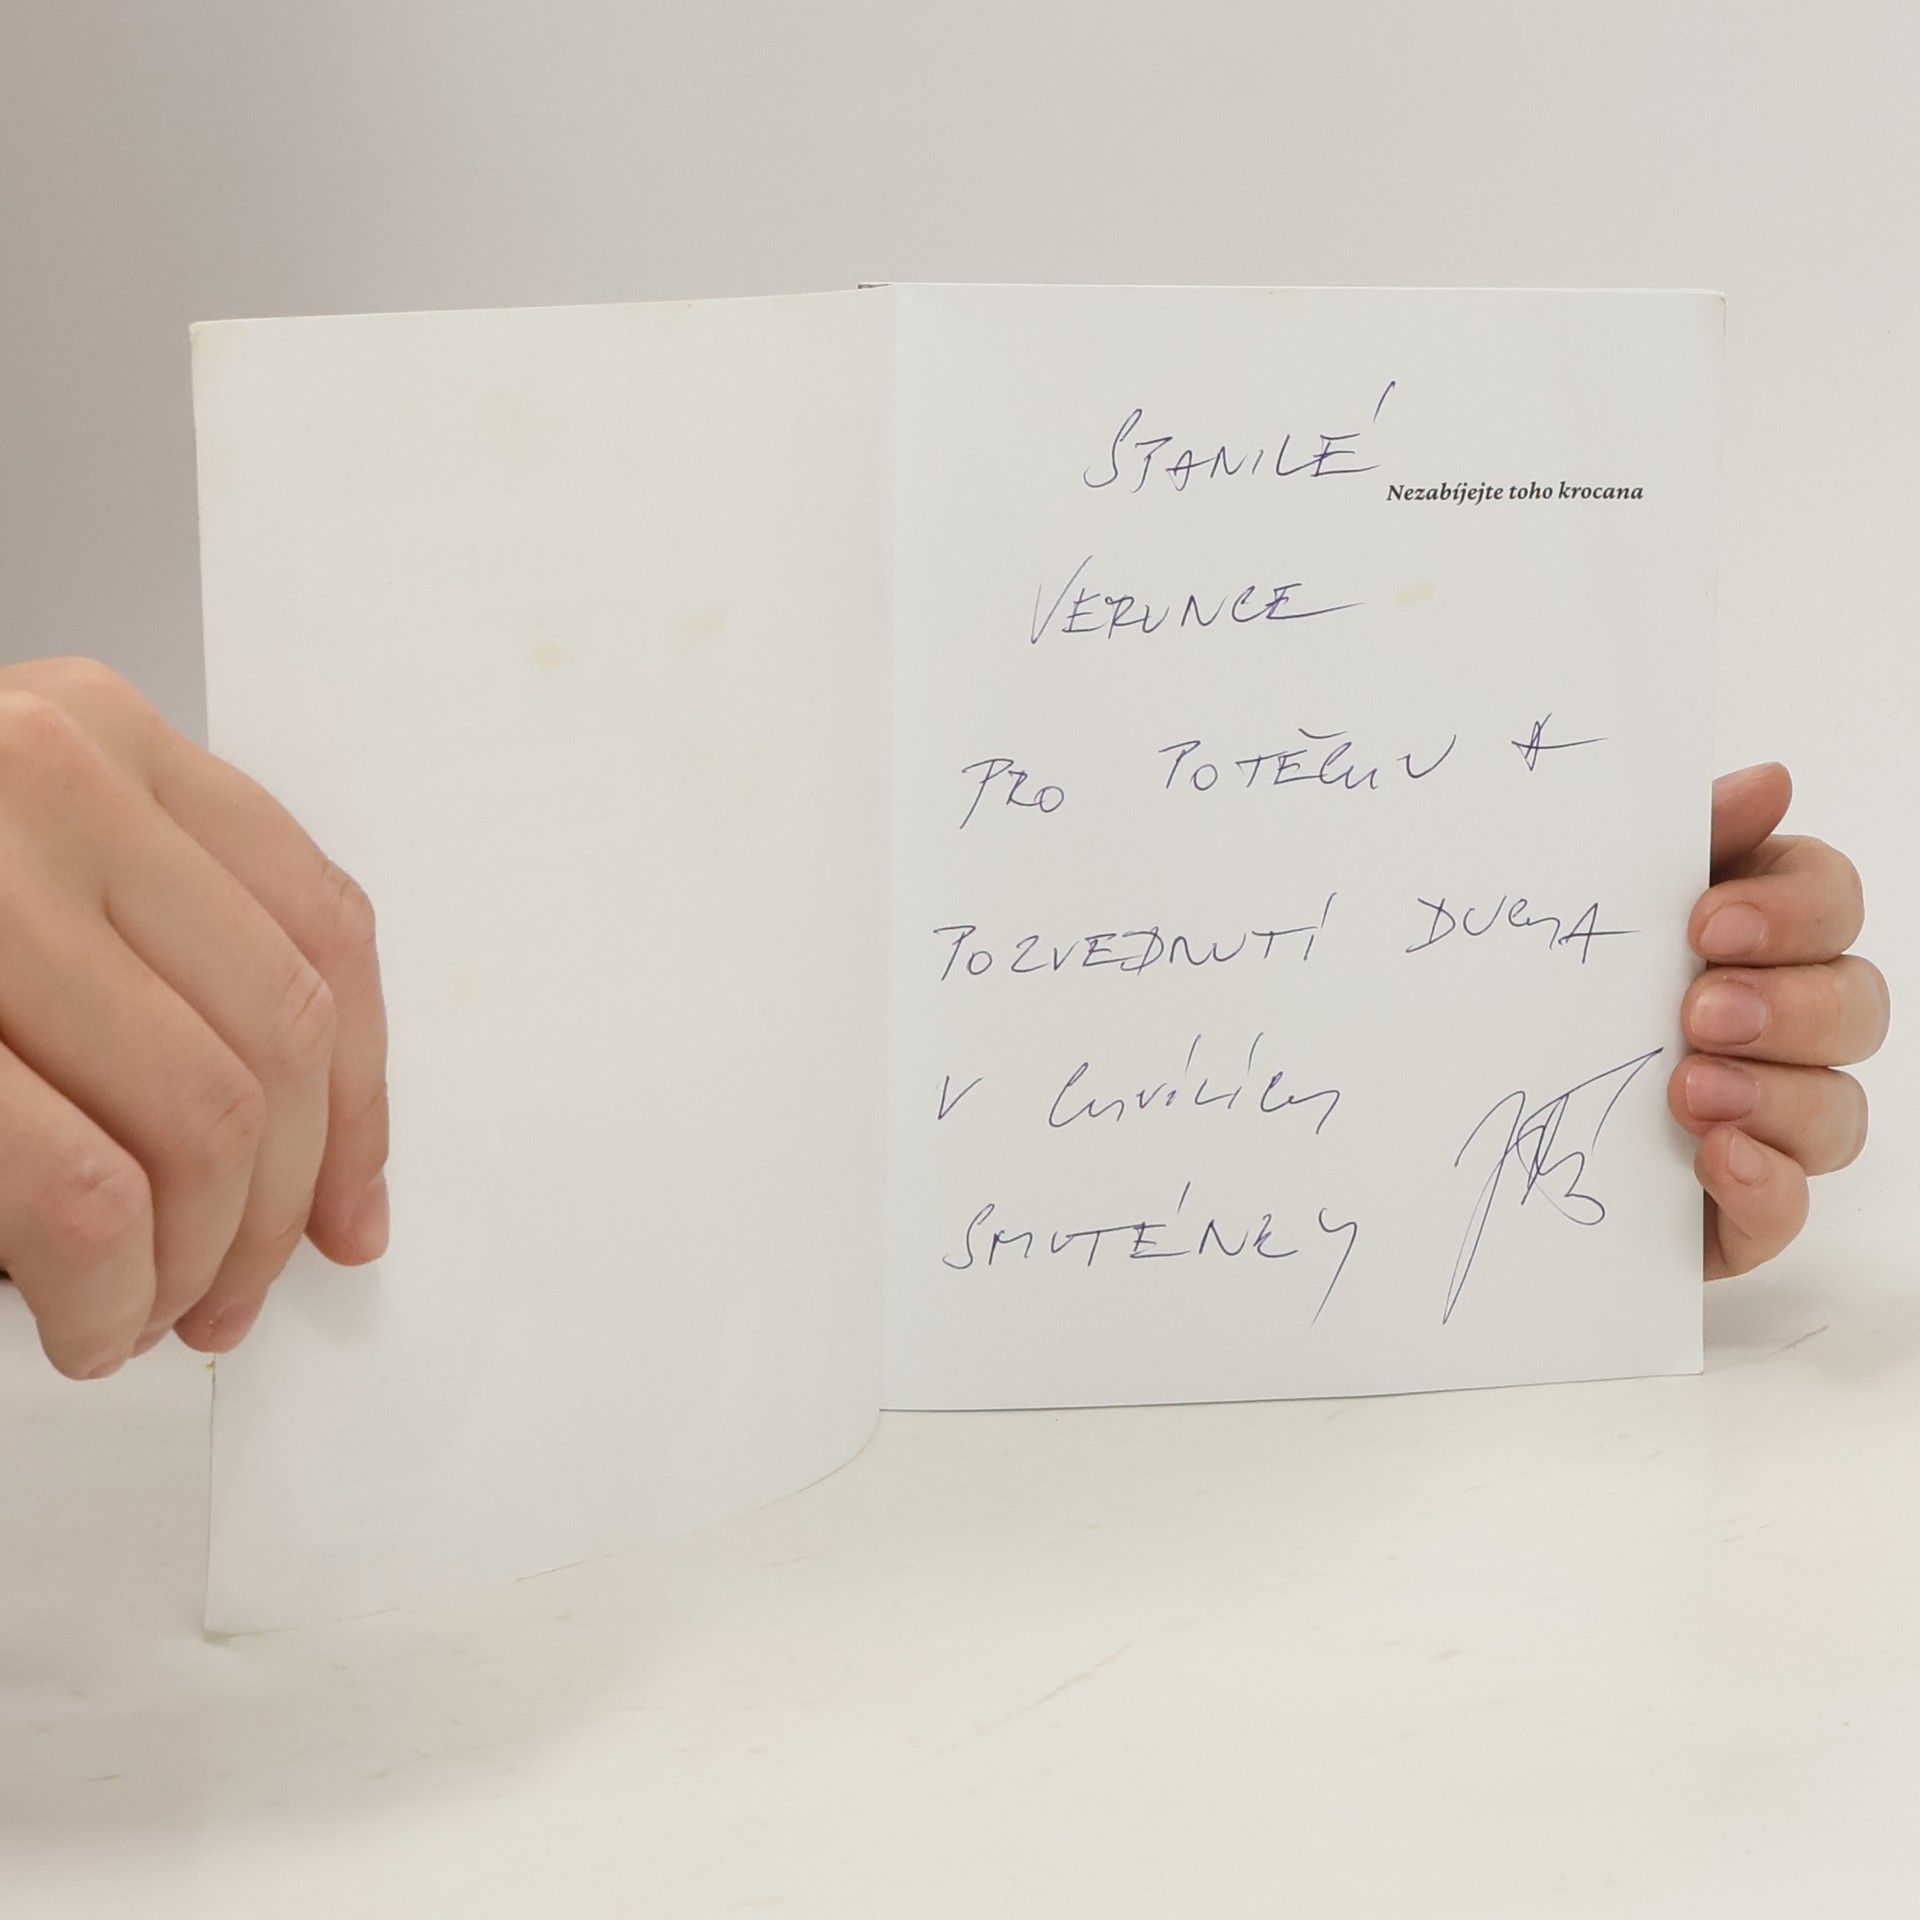 STANILÉ
Nezabíjejte toho krocana
VERUNCE
PRO POTĚCHU A
POZVEDNUTÍ DUCHA
V CHVÍLÍCH
SMUTÉNKY